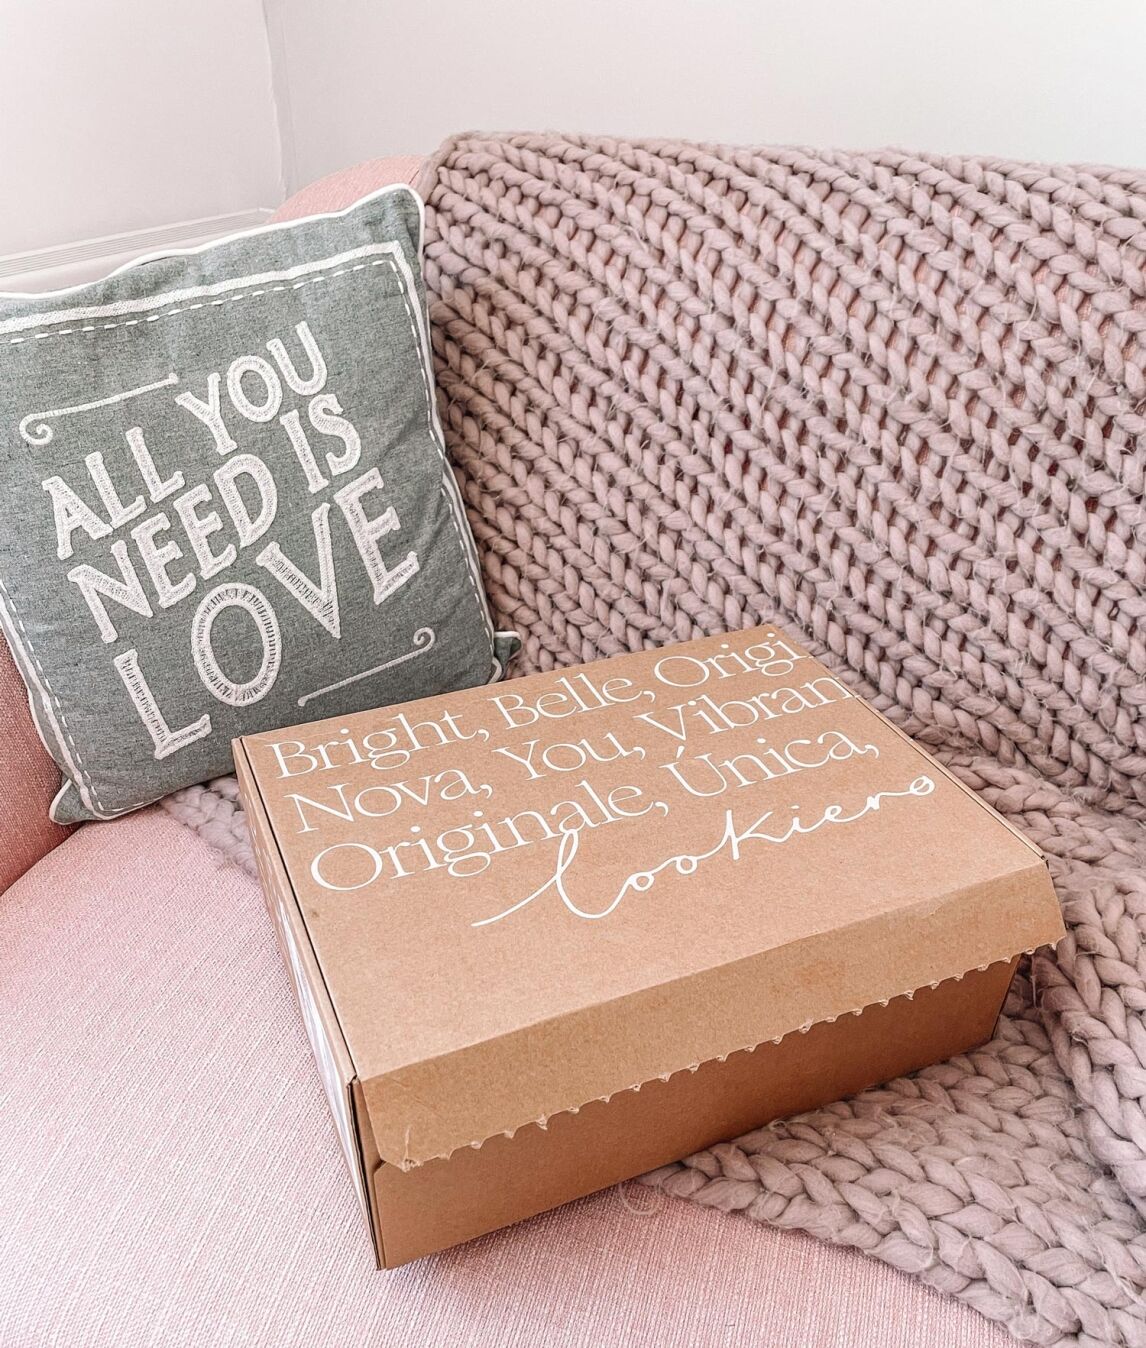 ALL YOU
NEED IS
LOVE
Bright, Belle, Origi
Nova, You, Vibran
Originale, Única,
Lookiero